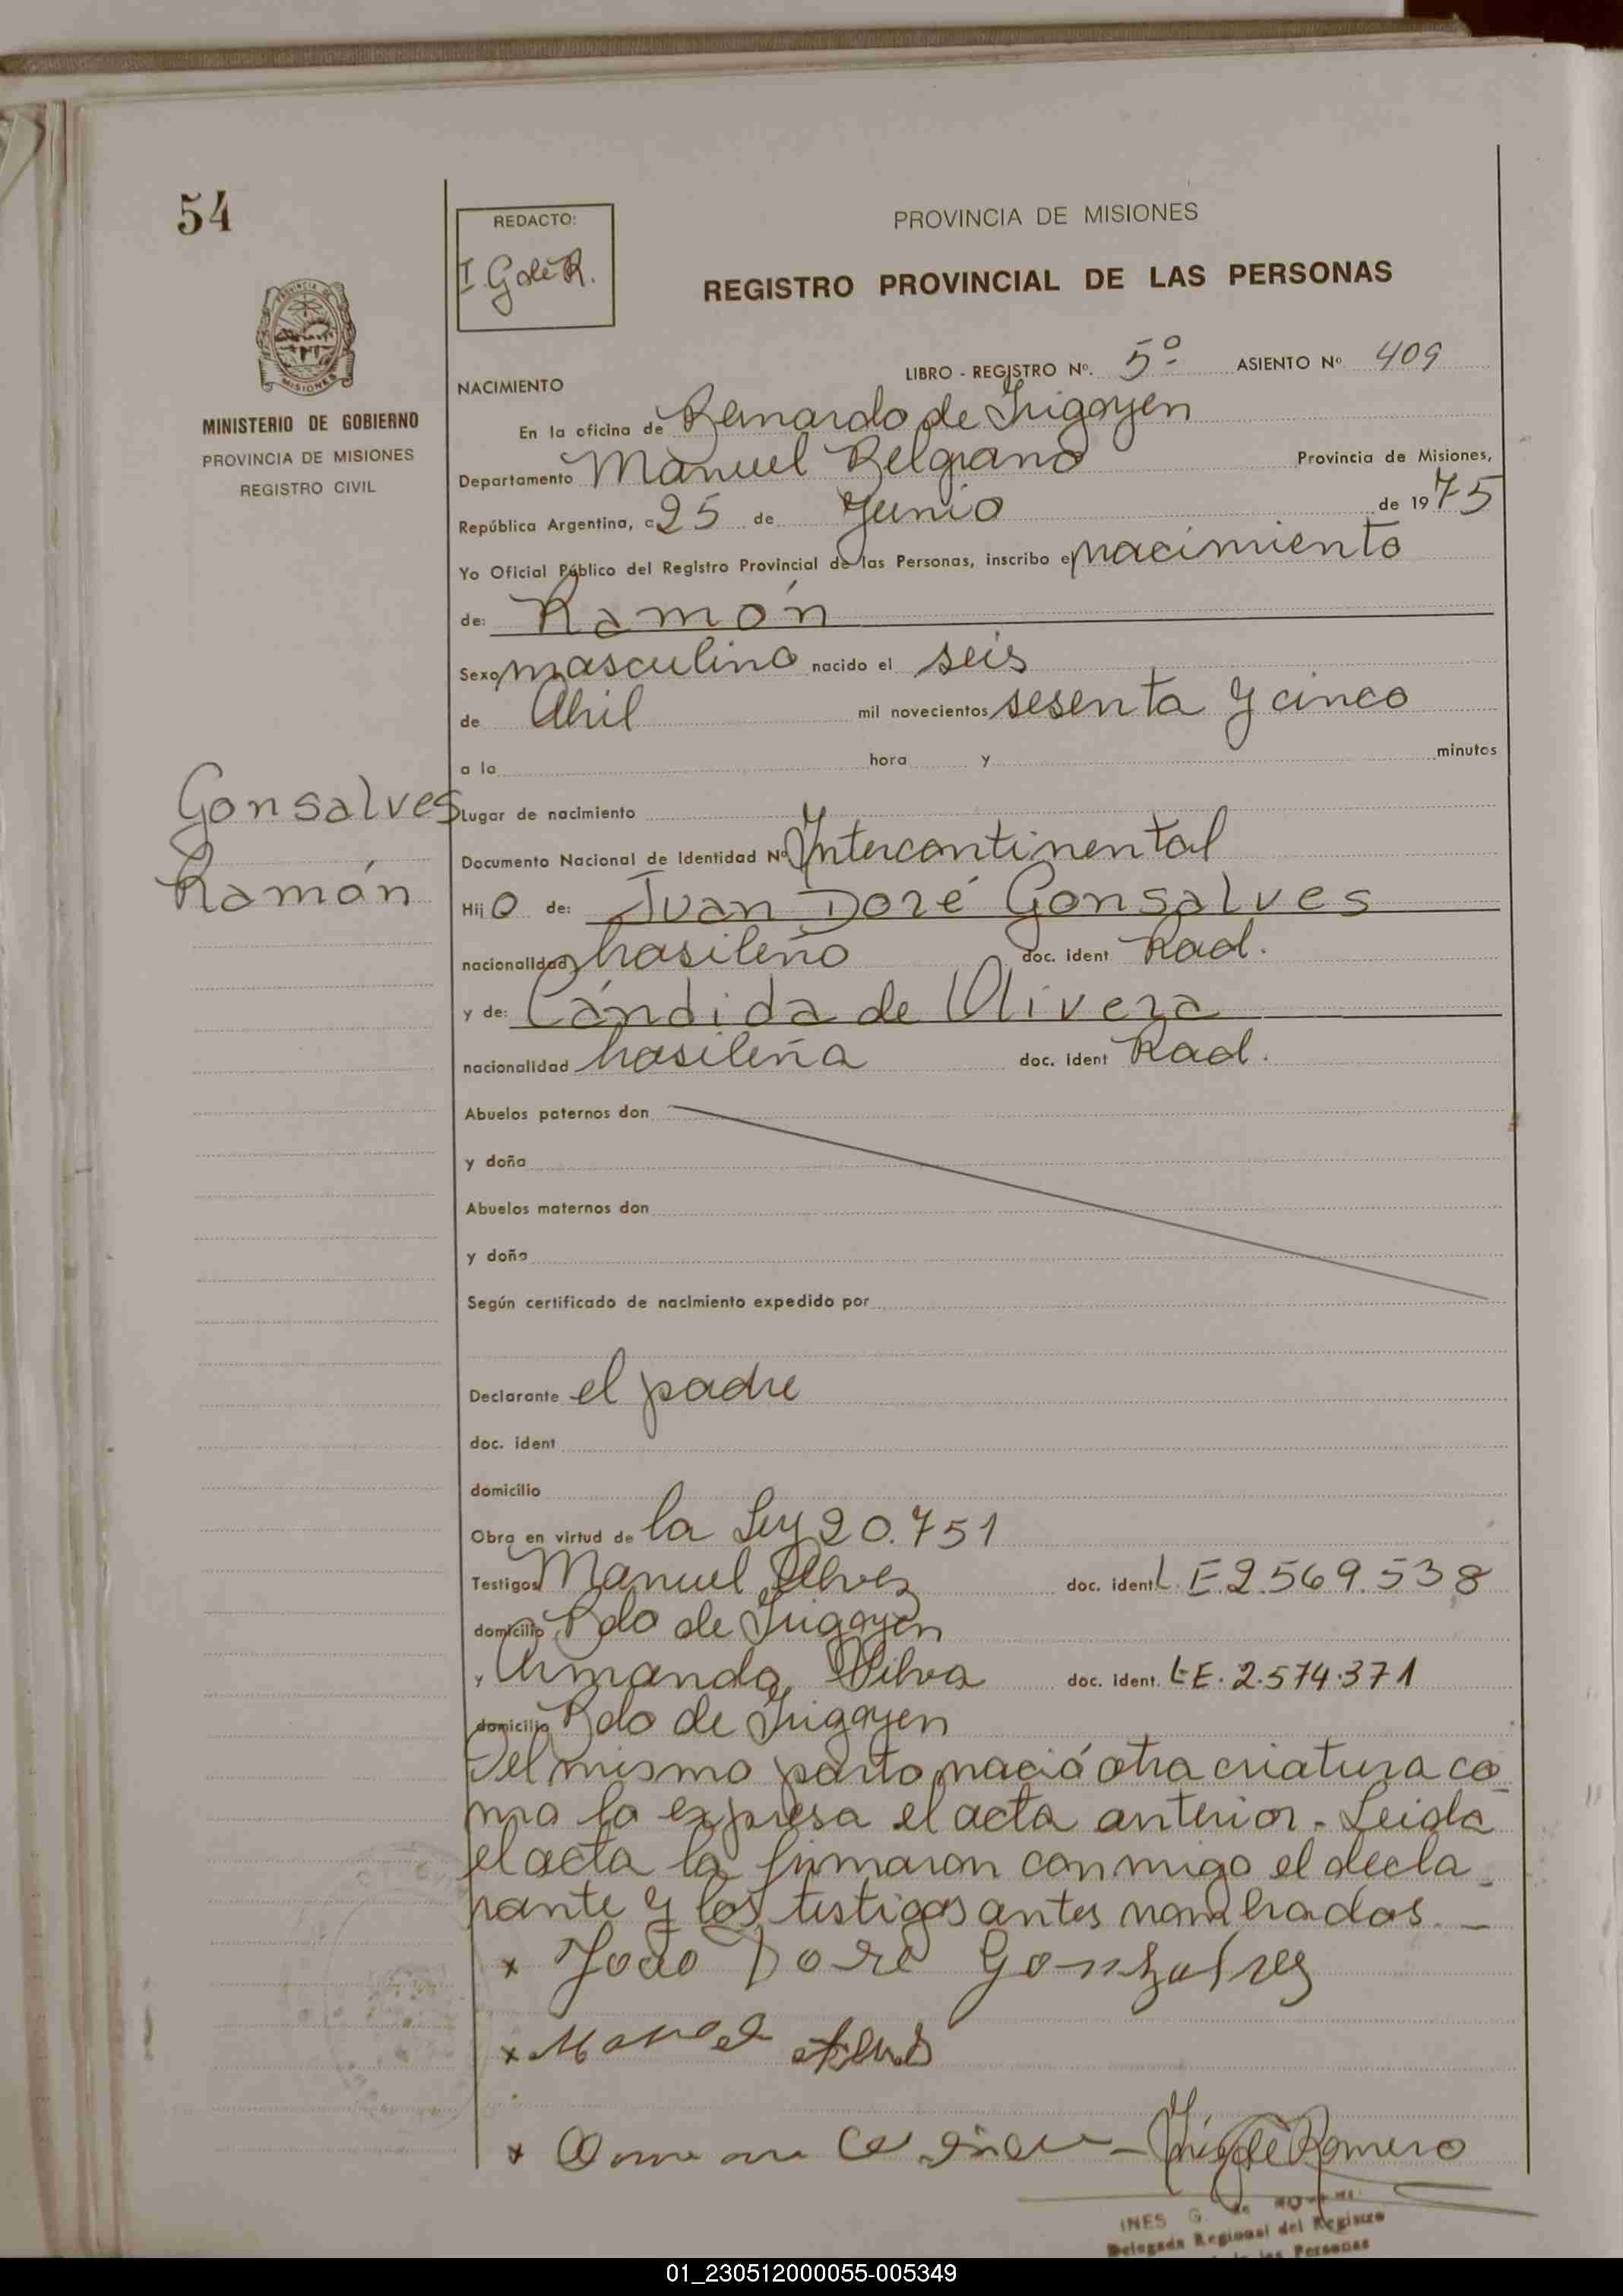 54
REDACTO:
I. G de R.
PROVINCIA DE MISIONES
REGISTRO PROVINCIAL DE LAS PERSONAS
PROVINCIA DE
MISIONES
MINISTERIO DE GOBIERNO
PROVINCIA DE MISIONES
REGISTRO CIVIL
LIBRO - REGISTRO Nº. 5º ASIENTO Nº 409
NACIMIENTO
En la oficina de Bernardo de Irigoyen
Departamento Manuel Belgrano Provincia de Misiones,
República Argentina, a 25 de Junio de 1975
Yo Oficial Público del Registro Provincial de las Personas, inscribo el nacimiento
de: Ramón
Sexo masculino nacido el seis
de Abril mil novecientos sesenta y cinco
a la hora y minutos
Gonsalves
Ramón
Lugar de nacimiento
Documento Nacional de Identidad Nº Intercontinental
Hijo de: Juan Doré Gonsalves
nacionalidad brasileño doc. ident Rad.
y de: Cándida de Olivera
nacionalidad brasileña doc. ident Rad.
Abuelos paternos don
y doña
Abuelos maternos don
y doña
Según certificado de nacimiento expedido por
Declarante el padre
doc. ident
domicilio
Obra en virtud de la Ley 20.751
Testigos Manuel Alves doc. ident L.E.2.569.538
domicilio Bdo de Irigoyen
y Armando Silva doc. ident. L.E. 2.574.371
domicilio Bdo de Irigoyen
Del mismo parto nació otra criatura co-
mo lo expresa el acta anterior. Leida
el acta la firmaron conmigo el decla-
rante y los testigos antes nombrados. _
x João Dore Gonzalves
x Manuel Alves
x
Inés G de Romero
INES G. de
Delegada Regional del Registro
de las Personas
01_230512000055-005349